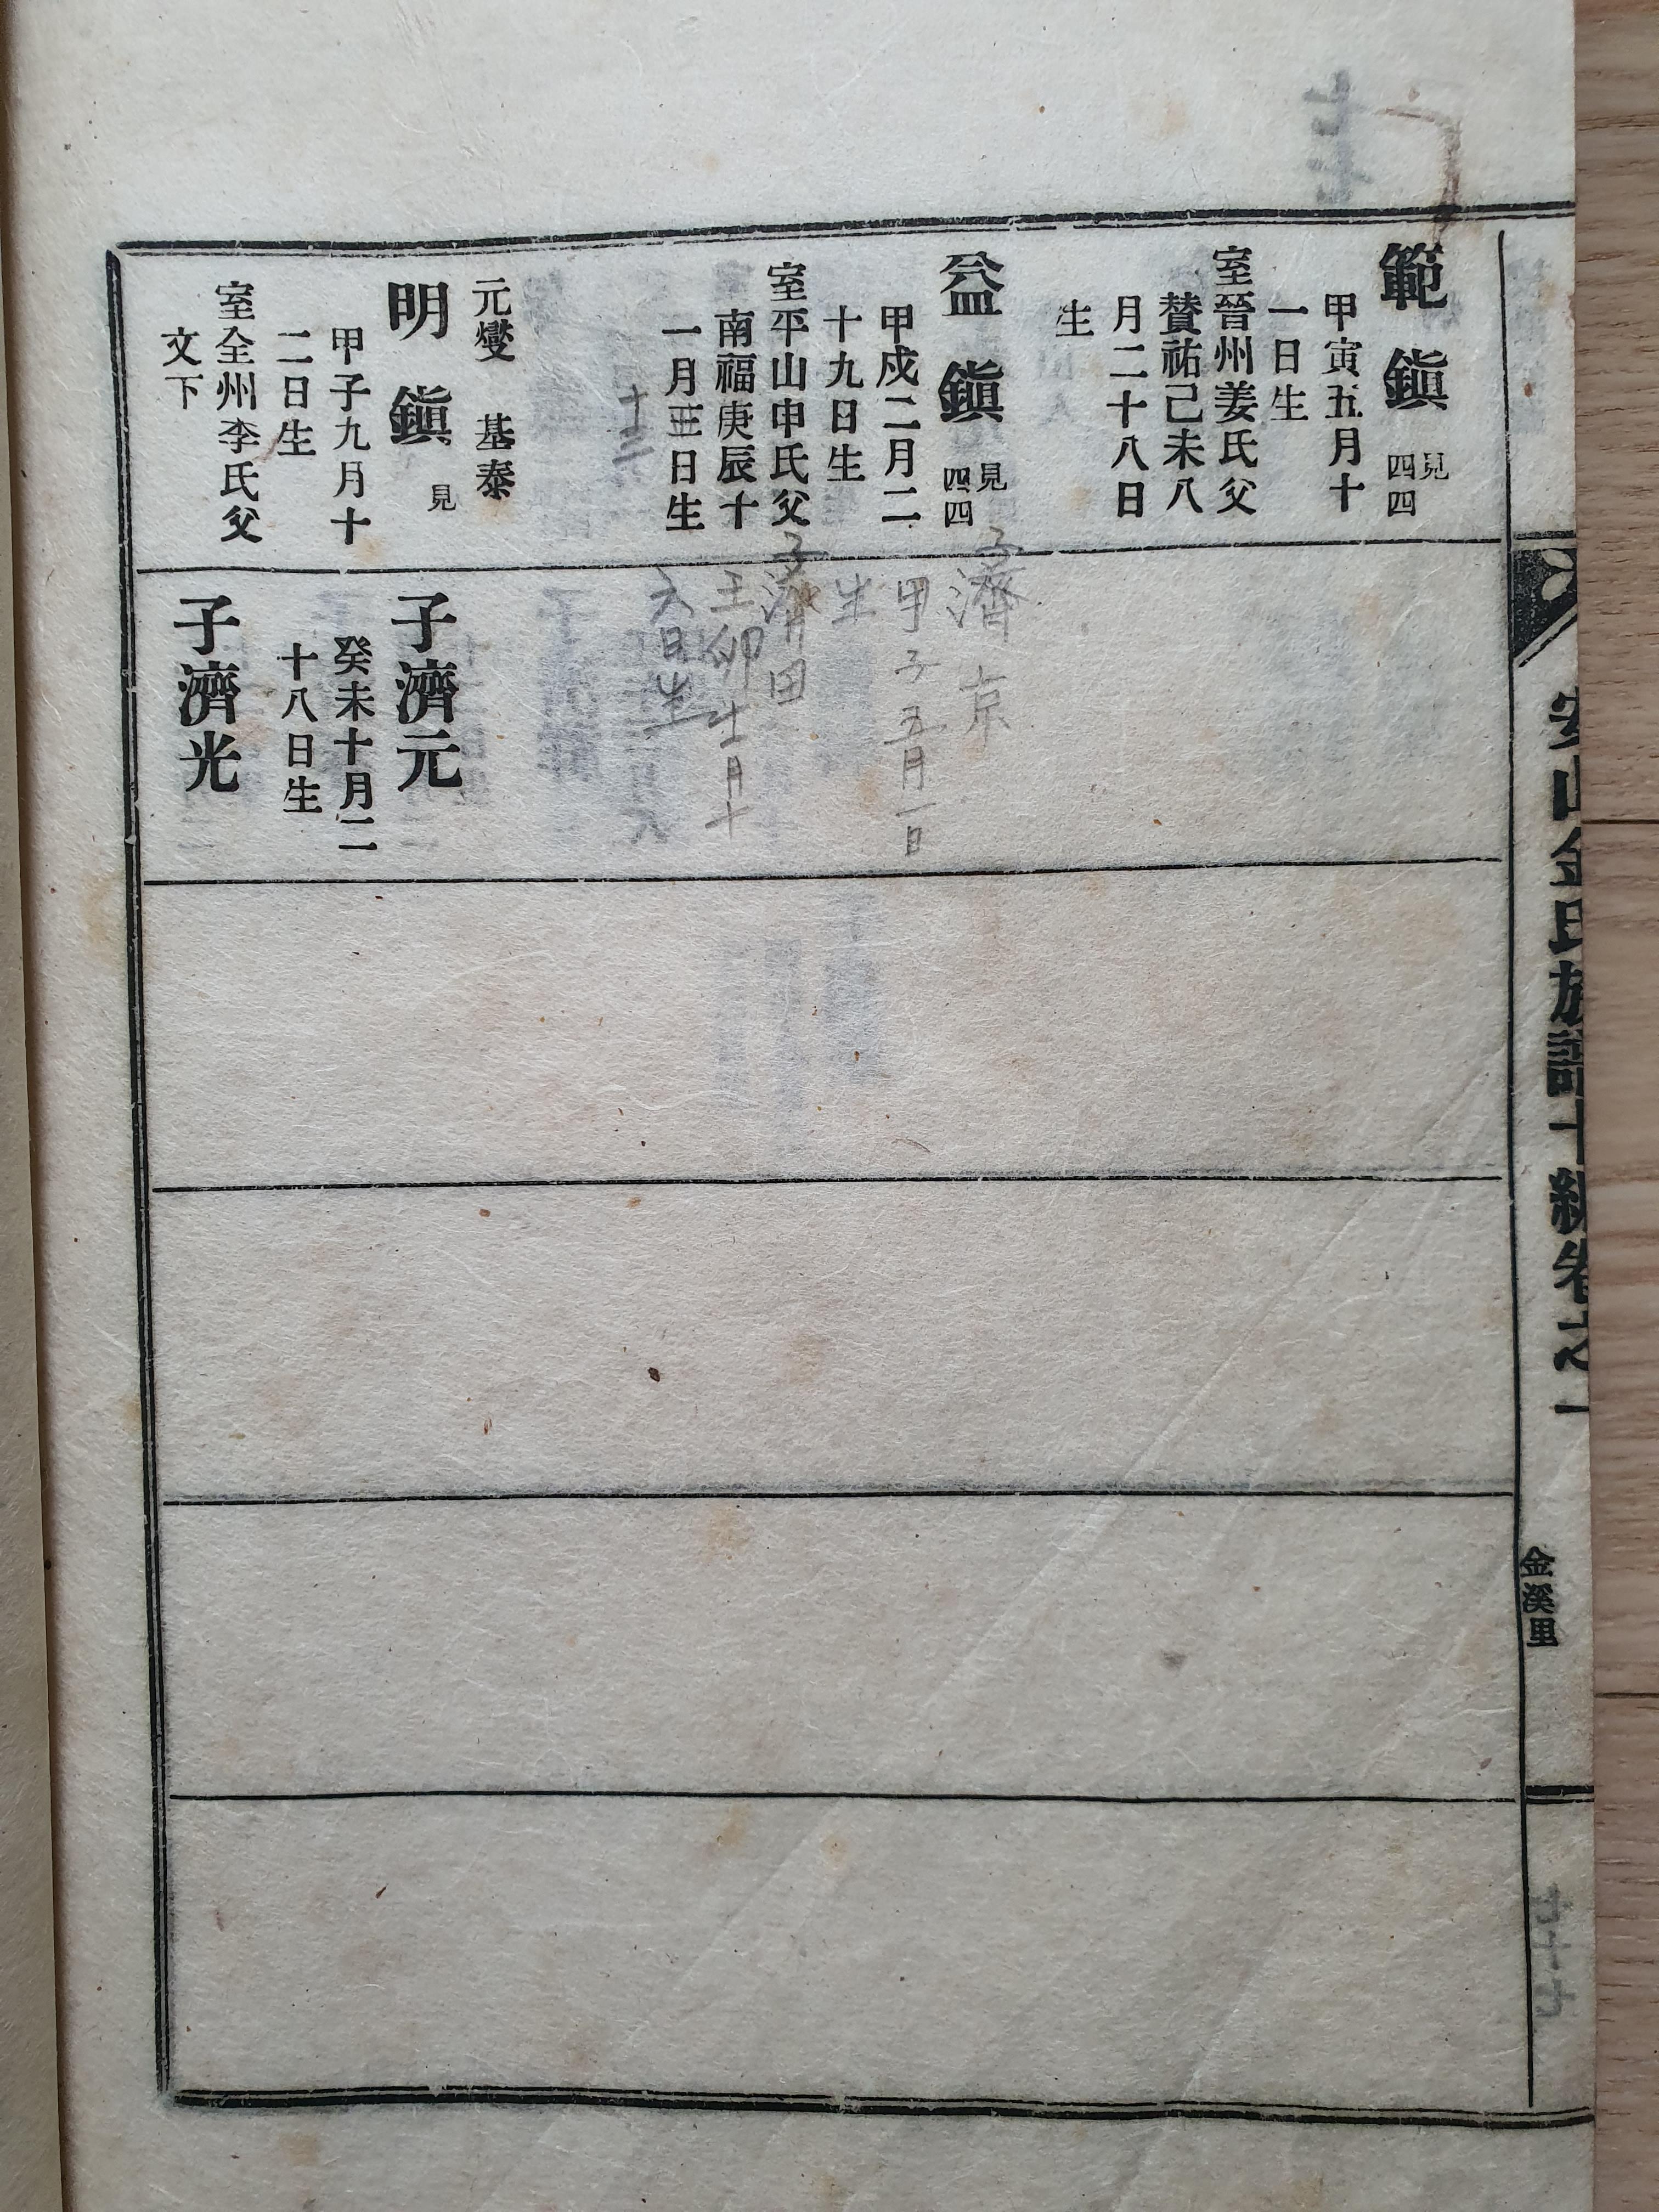 安山金氏族譜
金溪里
七十七
範鎭 見四四
甲寅五月十
一日生
室晉州姜氏父
賛祐己未八
月二十八日
生
益鎭 見四四
甲戍二月二
十九日生
室平山申氏父
南福庚辰十
一月日生
十二
元燮 基泰
明鎭 見
甲子九月十
二日生
室全州李氏父
文下
子濟京
甲子五月一日
生
子濟田
卯生月十
六日生
子濟元
癸未十月二
十八日生
子濟光